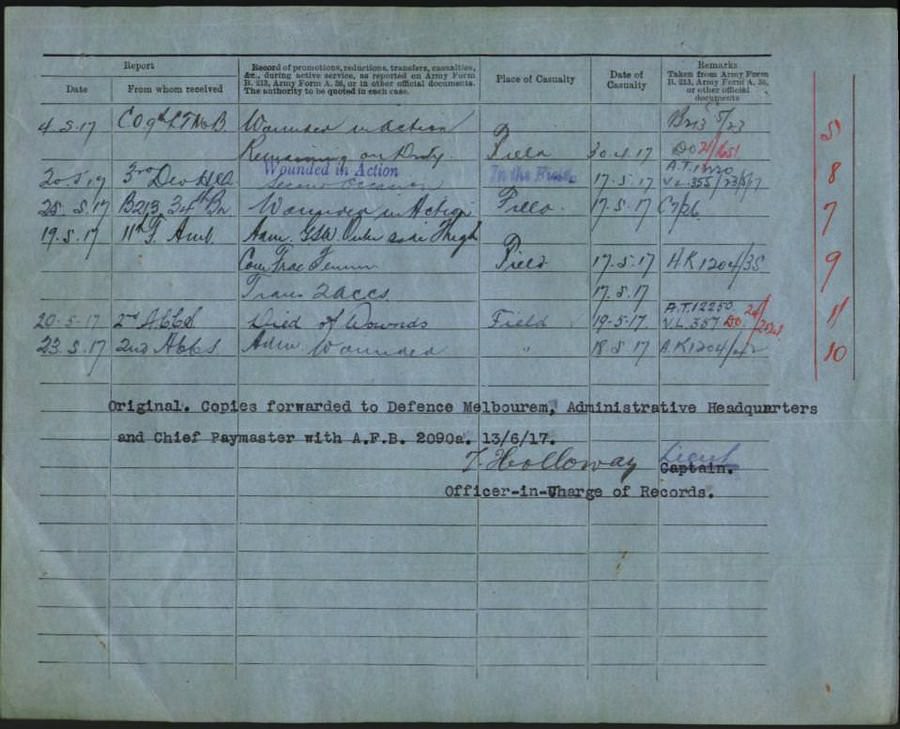 Report
Record of promotions, reductions, transfers, casualties, &c., during active service, as reported on Army Form B. 213, Army Form A. 36, or in other official documents. The authority to be quoted in each case.
Place of Casualty
Date of Casualty
Remarks
Taken from Army Form B. 213, Army Form A. 36, or other official documents
Date
From whom received
4.5.17 CO 9th LTMB. Wounded in Action B213 5/23
Remaining on Duty. Field 30.4.17 DO 21/651 5
20.5.17 3rd Div Wounded in Action In the Field 17.5.17 V.L.355 8
second occasion
25.5.17 B213 34th Bn Wounded in Action Field 17.5.17 C7/26 7
19.5.17 11th F. Amb. Adm. GSW Outer side Thigh
Com Frac Femur Field 17.5.17 A.K1204/35 9
Trans 2ACCS 17.5.17
20-5-17 2nd ACCS Died of Wounds Field 19-5-17 A.T.12250 V.L.357 DO 11
23.5.17 2nd Adm. Wounded " 18.5.17 A.K1204/42 10
Original. Copies forwarded to Defence Melbourem, Administrative Headquarters
and Chief Paymaster with A.F.B. 2090a. 13/6/17.
T. Holloway Lieut
Captain.
Officer-in-Charge of Records.